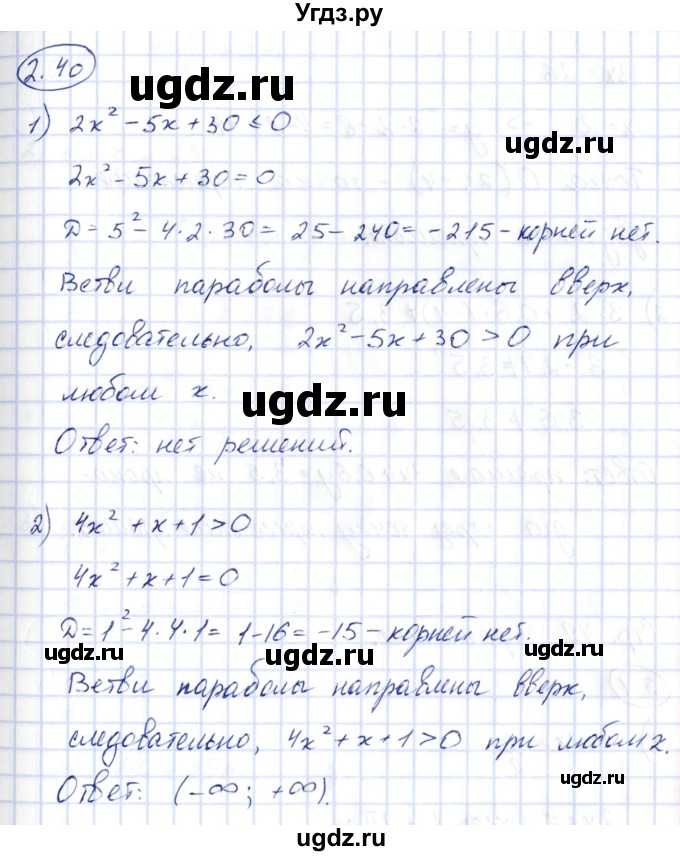 Угдз.ру
2.40
ugdz.ru
1) 2x² - 5x + 30 ≤ 0
2x² - 5x + 30 = 0
Д = 5² - 4·2·30 = 25 - 240 = -215 - корней нет.
Ветви параболы направлены вверх,
следовательно, 2x² - 5x + 30 > 0 при
любом x.
ugdz.ru
Ответ: нет решений.
2) 4x² + x + 1 > 0
ugdz.ru
4x² + x + 1 = 0
Д = 1² - 4·4·1 = 1 - 16 = -15 - корней нет.
ugdz.ru ugdz.ru ugdz.ru
Ветви параболы направлены вверх,
следовательно, 4x² + x + 1 > 0 при любом x.
ugdz.ru
Ответ: (-∞; +∞).
ugdz.ru